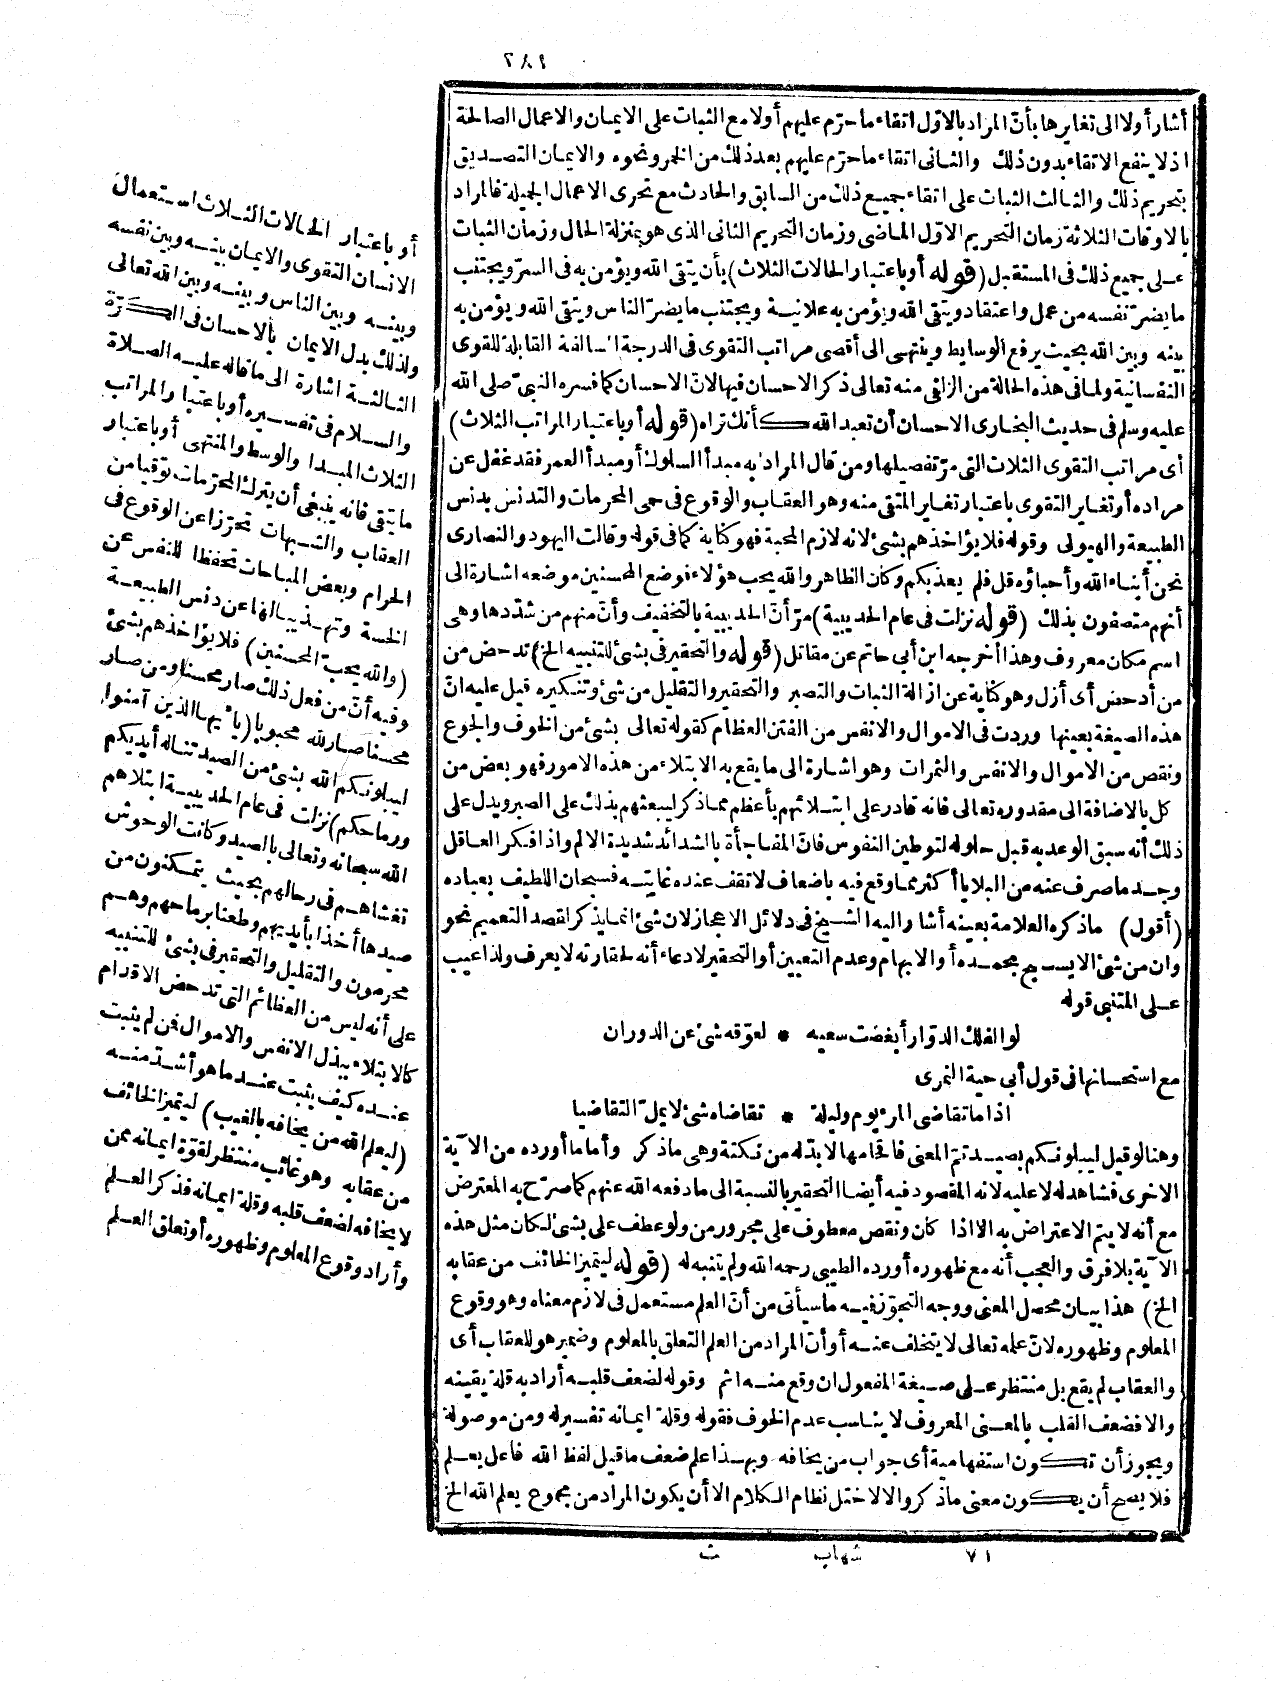 ٢٨١
أشار أولا الى تغايرها بأنّ المراد بالاوّل اتقاء ما حرّم عليهم أولا مع الثبات على الايمان والاعمال الصالحة
اذ لا ينفع الاتقاء بدون ذلك والثانى اتقاء ما حرّم عليهم بعد ذلك من الخمر ونحوه والايمان التصديق
بتحريم ذلك والثالث الثبات على اتقاء جميع ذلك من السابق والحادث مع تحرى الاعمال الجميلة فالمراد
بالاوقات الثلاثة زمان التحريم الاوّل الماضى وزمان التحريم الثانى الذى هو بمنزلة الحال وزمان الثبات
على جميع ذلك فى المستقبل (قوله أو باعتبار الحالات الثلاث) بأن يتقى الله ويؤمن به فى السرّ ويجتنب
ما يضرّ نفسه من عمل واعتقاد ويتقى الله ويؤمن به علانية ويجتنب ما يضرّ الناس ويتقى الله ويؤمن به
بينه وبين الله بحيث يرفع الوسايط وينتهى الى أقصى مراتب التقوى فى الدرجة السالفة القابلة للقوى
النفسانية ولما فى هذه الحالة من الزلفى منه تعالى ذكر الاحسان فيها لانّ الاحسان كما فسره النبىّ صلى الله
عليه وسلم فى حديث البخارى الاحسان أن تعبد الله كأنك تراه (قوله أو باعتبار المراتب الثلاث)
أى مراتب التقوى الثلاث التى مرّ تفصيلها ومن قال المراد به مبدأ السلوك أو مبدأ العمر فقد غفل عن
مراده أو تغاير التقوى باعتبار تغاير المتقى منه وهو العقاب والوقوع فى حمى المحرمات والتدنس بدنس
الطبيعة والهيولى وقوله فلا يؤاخذهم بشئ لانه لازم المحبة فهو كناية كما فى قوله وقالت اليهود والنصارى
نحن أبناء الله وأحباؤه قل فلم يعذبكم وكان الظاهر والله يحب هؤلاء فوضع المحسنين موضعه اشارة الى
أنهم متصفون بذلك (قوله نزلت فى عام الحديبية) مرّ أنّ الحديبية بالتخفيف وأنّ منهم من شدّدها وهى
اسم مكان معروف وهذا أخرجه ابن أبى حاتم عن مقاتل (قوله والتحقير فى بشئ للتنبيه الخ) تدحض من
من أدحض أى أزل وهو كناية عن ازالة الثبات والتصبر والتحقير والتقليل من شئ وتنكيره قيل عليه انّ
هذه الصيغة بعينها وردت فى الاموال والانفس من الفتن العظام كقوله تعالى بشئ من الخوف والجوع
ونقص من الاموال والانفس والثمرات وهو اشارة الى ما يقع به الابتلاء من هذه الامور فهو بعض من
كل بالاضافة الى مقدوره تعالى فانه قادر على ابتلائهم بأعظم مما ذكر ليبعثهم بذلك على الصبر ويدل على
ذلك أنه سبق الوعد به قبل حلوله لتوطين النفوس فانّ المفاجأة بالشدائد شديدة الالم واذا فكر العاقل
وجد ما صرف عنه من البلايا أكثر مما وقع فيه باضعاف لا تقف عنده غايته فسبحان اللطيف بعباده
(أقول) ما ذكره العلامة بعينه أشار اليه الشيخ فى دلائل الاعجاز لان شئ انما يذكر لقصد التعميم نحو
وان من شئ الا يسبح بحمده أو الابهام وعدم التعيين أو التحقير لادعاء أنه لحقارته لا يعرف ولذا عيب
على المتنبى قوله
لو الفلك الدوّار أبغضت سعيه * لعوّقه شئ عن الدوران
مع استحسانها فى قول أبى حية النمرى
اذا ما تقاضى المرء يوم وليلة * تقاضاه شئ لا يملّ التقاضيا
وهنا لو قيل ليبلونكم بصيد تمّ المعنى فاقحامها لا بدّ له من نكتة وهى ما ذكر وأما ما أورده من الآية
الاخرى فشاهد له لا عليه لانه المقصود فيه أيضا التحقير بالنسبة الى ما دفعه الله عنهم كما صرّح به المعترض
مع أنه لا يتم الاعتراض به الا اذا كان ونقص معطوف على مجرور من ولو عطف على بشئ لكان مثل هذه
الآية بلا فرق والعجب أنه مع ظهوره أورده الطيبى رحمه الله ولم يتنبه له (قوله ليتميز الخائف من عقابه
الخ) هذا بيان محصل المعنى ووجه التجوّز فيه ما سيأتى من أنّ العلم مستعمل فى لازم معناه وهو وقوع
المعلوم وظهوره لانّ علمه تعالى لا يتخلف عنه أو أنّ المراد من العلم التعلق بالمعلوم وضمير هو للعقاب أى
والعقاب لم يقع بل منتظر على صيغة المفعول ان وقع منه اثم وقوله لضعف قلبه أراد به قلة يقينه
والا فضعف القلب بالمعنى المعروف لا يناسب عدم الخوف فقوله وقلة ايمانه تفسير له ومن موصولة
ويجوز أن تكون استفهامية أى جواب من يخافه وبهذا علم ضعف ما قيل لفظ الله فاعل يعلم
فلا يصح أن يكون معنى ما ذكر والا لاختل نظام الكلام الا أن يكون المراد من مجموع يعلم الله الخ
٧١ شهاب ث
أو باعتبار الحالات الثلاث استعمال
الانسان التقوى والايمان بينه وبين نفسه
وبينه وبين الناس وبينه وبين الله تعالى
ولذلك بدل الايمان بالاحسان فى الكرّة
الثالثة اشارة الى ما قاله عليه الصلاة
والسلام فى تفسيره أو باعتبار المراتب
الثلاث المبدا والوسط والمنتهى أو باعتبار
ما يتقى فانه ينبغى أن يترك المحرّمات توقيا من
العقاب والشبهات تحرّزا عن الوقوع فى
الحرام وبعض المباحات تحفظا للنفس عن
الخسة وتهذيبا لها عن دنس الطبيعة
(والله يحب المحسنين) فلا يؤاخذهم بشئ
وفيه أنّ من فعل ذلك صار محسنا ومن صار
محسنا صار لله محبوبا (يا أيها الذين آمنوا
ليبلونكم الله بشئ من الصيد تناله أيديكم
ورماحكم) نزلت فى عام الحديبية ابتلاهم
الله سبحانه وتعالى بالصيد وكانت الوحوش
تغشاهم فى رحالهم بحيث يتمكنون من
صيدها أخذا بأيديهم وطعنا برماحهم وهم
محرمون والتقليل والتحقير فى بشئ للتنبيه
على أنه ليس من العظائم التى تدحض الاقدام
كالابتلاء ببذل الانفس والاموال فمن لم يثبت
عنده كيف يثبت عند ما هو أشدّ منه
(ليعلم الله من يخافه بالغيب) ليتميز الخائف
من عقابه وهو غائب منتظر لقوّة ايمانه ممن
لا يخافه لضعف قلبه وقلة ايمانه فذكر العلم
وأراد وقوع المعلوم وظهوره أو تعلق العلم